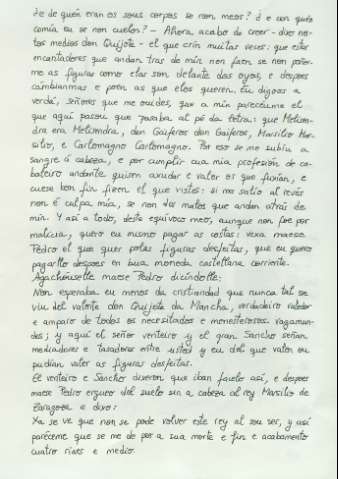 ¿e de quén eran os seus corpos se non meos? ¿e con quén
comía eu se non cuelos? - Ahora acabo de creer - díxo nes-
tos medios don Quijote - el que crín muitas veces: que estos
encantadores que andan tras de min non faen se non poñer-
me as figuras como elas son delante dos oyos, e despois
cámbianmas e poen as que elos queren. Eu digoos a
verdá, señores que me ouides, que a min pareceume el
que aquí pasou que pasaba al pé da letra: que Melisen-
dra era Melisendra, don Gaiferos don Gaiferos, Marsilio Mar-
silio, e Carlomagno Carlomagno. Por eso se me subíu a
sangre á cabeza, e por cumplir cua mia profesión de ca-
baleiro andante quixen axudar e valer os que fuxían, e
cuese bon fin fixen el que vistes: si me saliu al revés
non é culpa mía, se non dos malos que andan atrás de
min. Y así a todo, deste equívoco meo, aunque non foe por
malicia, quero eu mismo pagar as costas: vexa maese
Pedro el que quer polas figuras desfeitas, que eu quero
pagarllo despois en bua moneda castellana corriente.
Agachouselle maese Pedro dicíndolle:
Non esperaba eu menos da cristiandad que nunca tal se
viu del valente don Quijote da Mancha, verdadeiro valedor
e amparo de todos os necesitados e menesterosos vagamun-
dos; y aquí el señor venteiro y el gran Sancho serían
mediadores e tasadores entre usted y eu del que valen ou
pudían valer as figuras desfeitas.
El venteiro e Sancho dixeron que iban facelo así, e despois
maese Pedro ergueu del suelo sin a cabeza al rey Marsilio de
Zaragoza e dixo:
Xa se ve que non se pode volver este rey al sou ser, y así
paréceme que se me dé por a sua morte e fin e acabamento
cuatro riaes e medio.